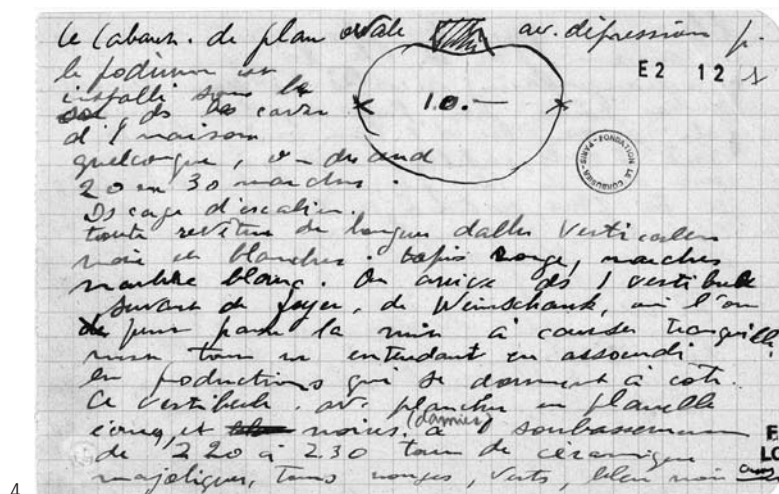 Le Cabaret. de plan ovale av. dépression p.
le podium est
E2 12
installé sous le
sol, ds la cave
10.–
d'1 maison
quelconque, on descend
FONDATION LE CORBUSIER - PARIS
20 ou 30 marches.
Ds cage d'escalier.
toute revêtue de longues dalles verticales
noires et blanches. tapis rouge, marches
marbre blanc. On arrive ds 1 vestibule
servant de foyer, de Weinschank, où l'on
peut passer la nuit à causer tranquille
tout en entendant en assourdi
les productions qui se donnent à côté.
Ce vestibule. avec plancher en planelle
et noires. à (damier) soubassement
de 220 à 230 tout de céramique
majoliques, tons rouges, verts, bleu noir
F
LC
4